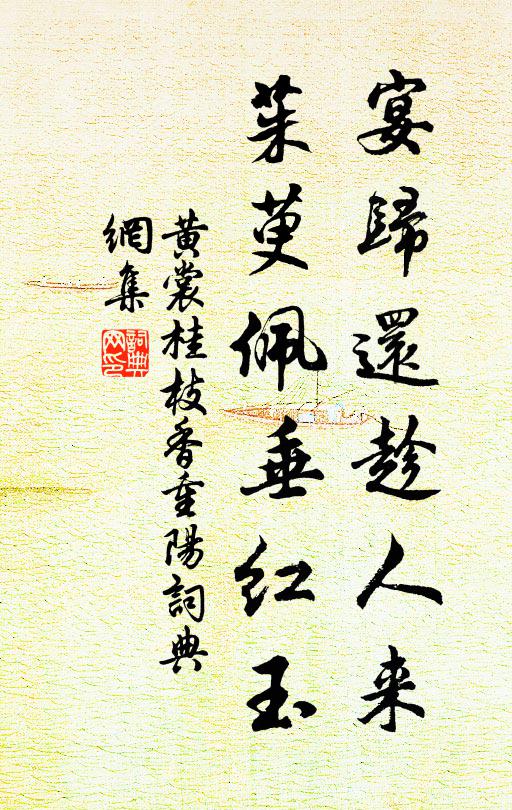 宴歸還趁人来
茱萸佩垂红玉
黄裳桂枝香重陽詞典
網集
詞典
网印